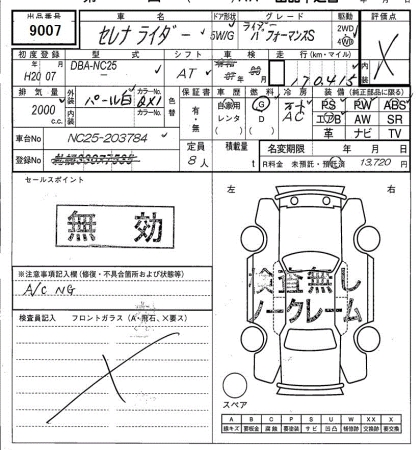 出品番号 車名 ドア形状 グレード 駆動 評価点
9007 セレナ ライダー 5W/G ライダー パフォーマンスS 2WD 4WD
初度登録 型式 シフト 車検 走行(km・マイル) 内装
年 月 H20 07 DBA-NC25 AT 年 月 170,415
排気量 外装色 カラーNo. 色替 保証書 車歴 燃料 冷房 装備(純正部品に限る)
2000 c.c. パール白 QX1 有・無 自家用 レンタ G D オート AC PS PW ABS
エアB AW SR
革 ナビ TV
車台No NC25-203784 定員 積載量 名変期限 年 月 日
登録No 8人 t R料金 未預託・預託済 13,720 円
セールスポイント
無効
左 右
※注意事項記入欄(修復・不具合箇所および状態等)
A/C NG
検査員記入 フロントガラス(A・飛石、X要ス)
検査無し
ノークレーム
スペア
A B C P S U W X XX X
線キズ 要板金 腐蝕 要塗装 サビ 凹凸 補修跡 交換跡 要交換